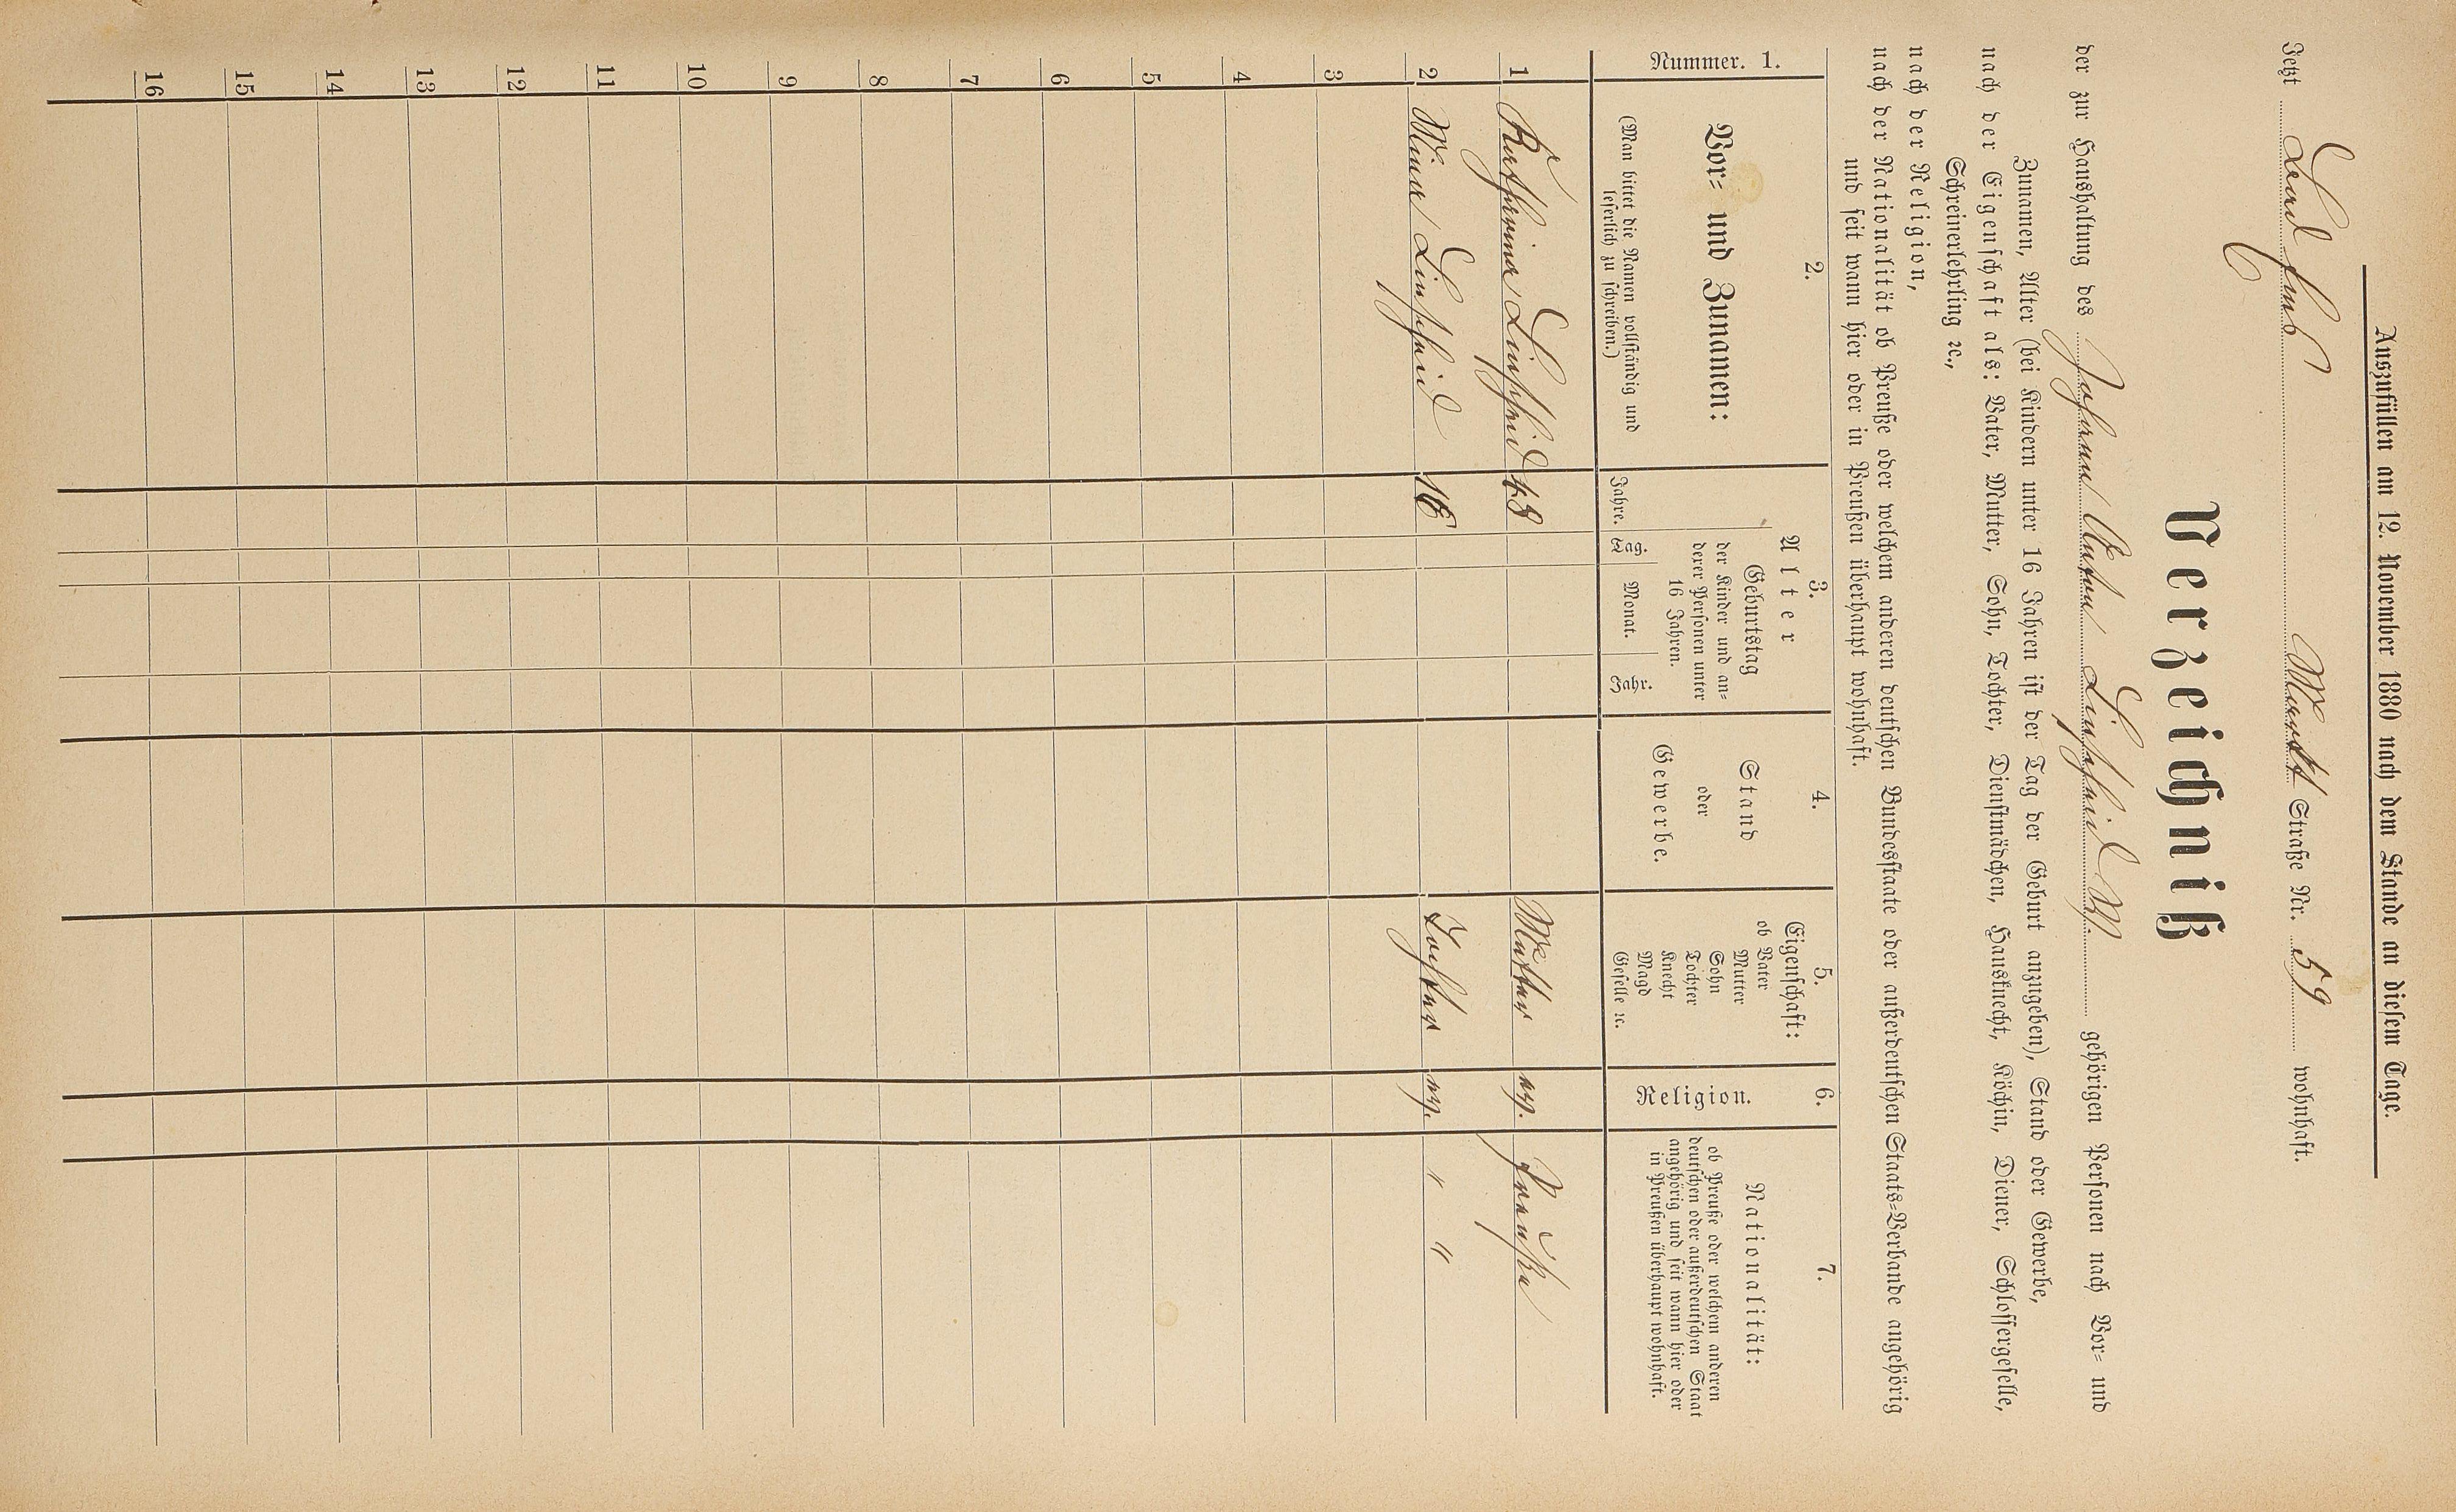 Auszufüllen am 12. November 1880 nach dem Stande an diesem Tage.
Jetzt Markt Straße Nr. 59 wohnhaft.
Verzeichniß
der zur Haushaltung des Johann Anton gehörigen Personen nach Vor- und
Zunamen, Alter (bei Kindern unter 16 Jahren ist der Tag der Geburt anzugeben), Stand oder Gewerbe,
nach der Eigenschaft als: Vater, Mutter, Sohn, Tochter, Dienstmädchen, Hausknecht, Köchin, Diener, Schlossergeselle,
Schreinerlehrling ꝛc.,
nach der Religion,
nach der Nationalität ob Preuße oder welchem anderen deutschen Bundesstaate oder außerdeutschen Staats-Verbande angehörig
und seit wann hier oder in Preußen überhaupt wohnhaft.
Nummer. 1.
2.
Vor- und Zunamen:
(Man bittet die Namen vollständig und
leserlich zu schreiben.)
3.
Alter
Jahre.
Geburtstag
der Kinder und an-
derer Personen unter
16 Jahren.
Tag.
Monat.
Jahr.
4.
Stand
oder
Gewerbe.
5.
Eigenschaft:
ob Vater
Mutter
Sohn
Tochter
Knecht
Magd
Geselle ꝛc.
6.
Religion.
7.
Nationalität:
ob Preuße oder welchem anderen
deutschen oder außerdeutschen Staat
angehörig und seit wann hier oder
in Preußen überhaupt wohnhaft.
1 Katharina 48 Mutter ev. Preuße
2 Mina 16 Tochter ev. " "
3
4
5
6
7
8
9
10
11
12
13
14
15
16